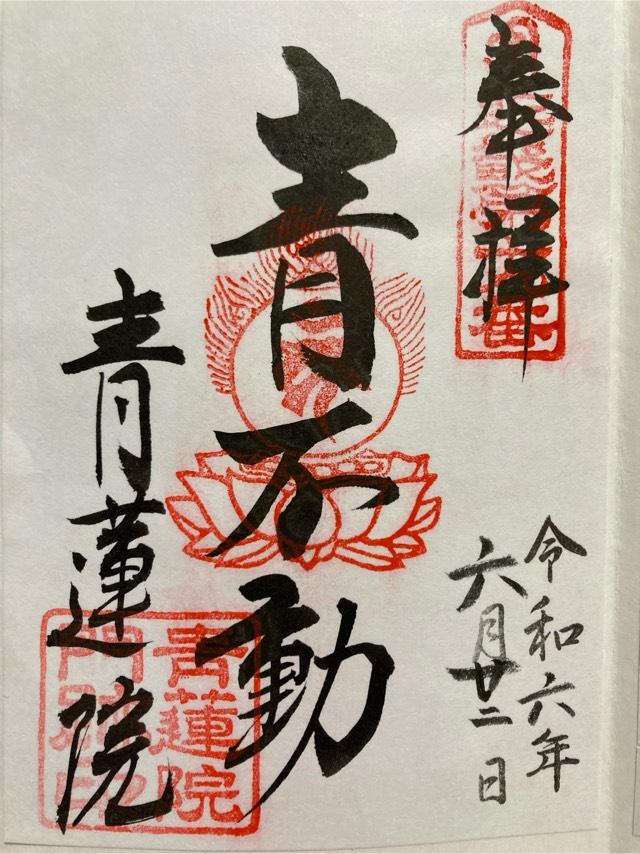 奉拝
令和六年
六月廿二日
青不動
青蓮院
青蓮院